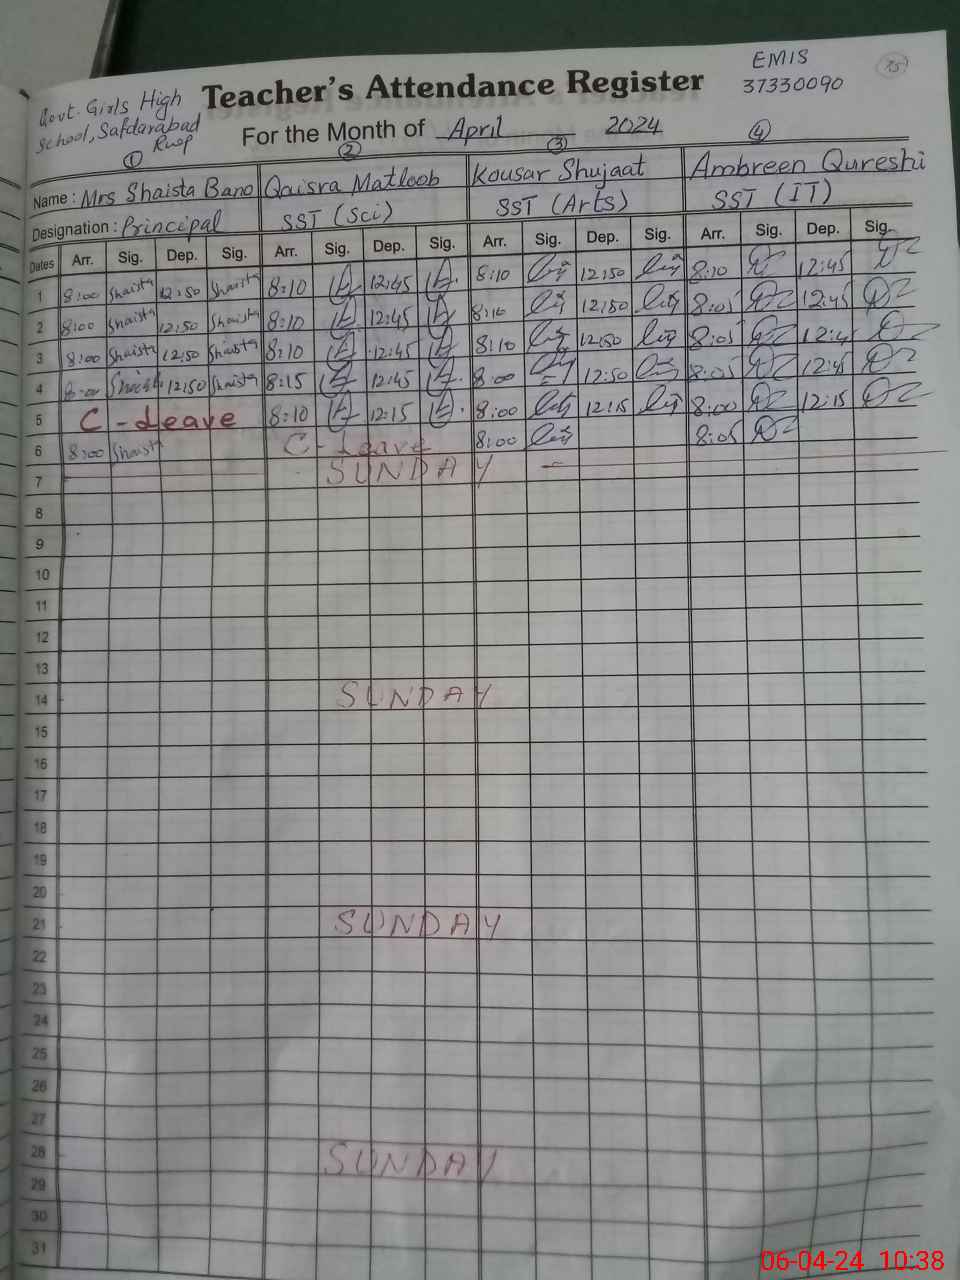 EMIS
37330090
Govt. Girls High
School, Safdarabad
Rwp
Teacher's Attendance Register
For the Month of April 2024
1 2 3 4
Name : Mrs Shaista Bano Qaisra Matloob Kousar Shujaat Ambreen Qureshi
Designation : Principal SST (Sci) SST (Arts) SST (IT)
Dates Arr. Sig. Dep. Sig. Arr. Sig. Dep. Sig. Arr. Sig. Dep. Sig. Arr. Sig. Dep. Sig.
1 8:00 Shaista 12:50 Shaista 8:10 12:45 8:10 12:50 8:10 12:45
2 8:00 Shaista 12:50 Shaista 8:10 12:45 8:10 12:50 8:05 12:45
3 8:00 Shaista 12:50 Shaista 8:10 12:45 8:10 12:50 8:05 12:4
4 8:00 Shaista 12:50 Shaista 8:15 12:45 8:00 12:50 8:05 12:45
5 C-Leave 8:10 12:15 8:00 12:15 8:00 12:15
6 8:00 Shaista C-Leave 8:00 8:05
7 SUNDAY
8
9
10
11
12
13
14 SUNDAY
15
16
17
18
19
20
21 SUNDAY
22
23
24
25
26
27
28 SUNDAY
29
30
31
06-04-24 10:38